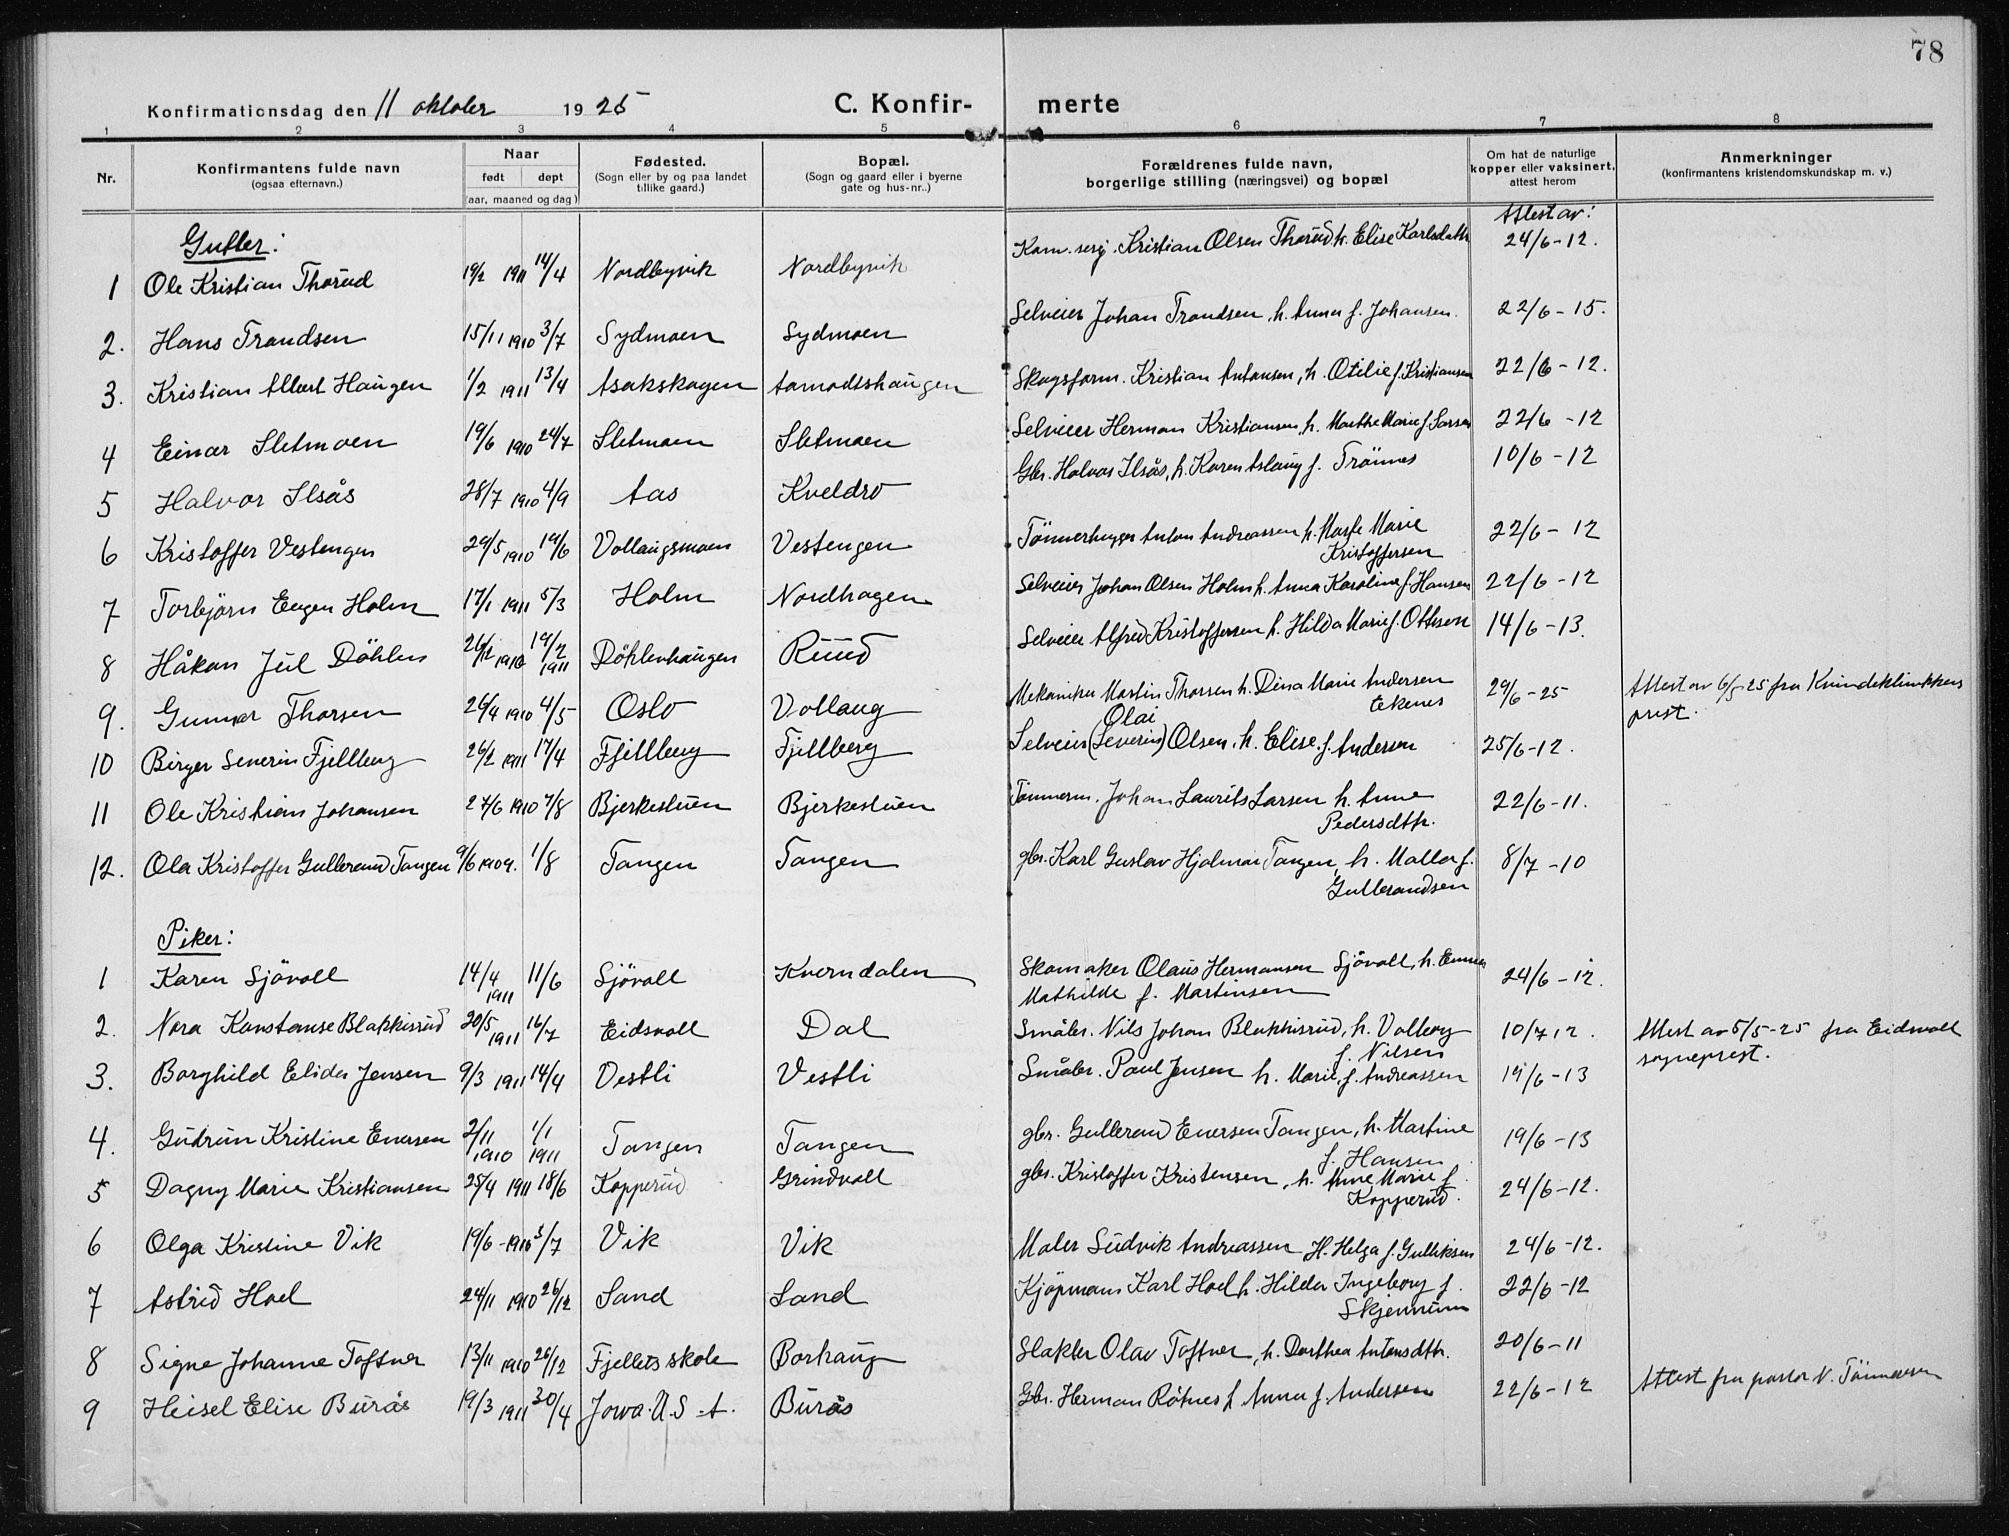 78
Konfirmationsdag den 11 oktober 1925 C. Konfir- merte
1 2 3 4 5 6 7 8
Nr. Konfirmantens fulde navn (ogsaa efternavn.) Naar født døpt (aar, maaned og dag) Fødested. (Sogn eller by og paa landet tillike gaard.) Bopæl. (Sogn og gaard eller i byerne gate og hus-nr..) Forældrenes fulde navn, borgerlige stilling (næringsvei) og bopæl Om hat de naturlige kopper eller vaksinert, attest herom Anmerkninger (konfirmantens kristendomskundskap m. v.)
Attest av:
Gutter:
1 Ole Kristian Thorud 19/2 1911 14/4 Nordbyvik Nordbyvik Kom. serj. Kristian Olsen Thorud h. Elise Karlsdatter 24/6-12.
2. Hans Trandsen 15/11 1910 3/7 Sydmoen Sydmoen Selveier Johan Trandsen, h. Anna f. Johansen. 22/6-15.
3. Kristian Albert Haugen 1/2 1911 13/4 Asakskogen Aamodtshaugen Skogsform. Kristian Antonsen, h. Otilie f. Kristiansen 22/6-12.
4 Einar Sletmoen 19/6 1910 24/7 Sletmoen Sletmoen Selveier Herman Kristiansen, h. Marthe Marie f. Larsen 22/6-12
5 Halvor Ilsås 28/7 1910 4/9 Aas Kveldro Gbr. Halvor Ilsås, h. Karen Aslaug f. Trönnes 10/6-12
6 Kristoffer Vestengen 29/5 1910 19/6 Vollaugsmoen Vestengen Tömmerhugger Anton Andreassen h. Marte Marie
Kristoffersen 22/6-12
7 Torbjörn Eugen Holm 17/1 1911 5/3 Holm Nordhagen Selveier Johan Olsen Holm h. Anna Karoline f. Hansen 22/6-12
8 Håkon Jul Döhlen 26/12 1910 19/2 1911 Döhlenhaugen Ruud Selveier Alfred Kristoffersen h. Hilda Marie f. Ottesen 14/6-13.
9. Gunnar Thorsen 26/4 1910 4/5 Oslo Vollaug Mekaniker Martin Thorsen h. Dina Marie Andersen
Ekenes 29/6-25 Attest av 6/5-25 fra Kvindeklinikkens
prest.
10 Birger Severin Fjellberg 26/2 1911 17/4 Fjellberg Fjellberg Selveier (Severin) Olai Olsen, h. Elise f. Andersen 25/6-12.
11 Ole Kristian Johansen 27/6 1910 7/8 Bjerkestuen Bjerkestuen Tömmerm. Johan Laurits Larsen h. Anne
Pedersdtr. 22/6-11.
12. Ola Kristoffer Gulleraud Tangen 9/6 1909. 1/8 Tangen Tangen gbr. Karl Gustav Hjalmar Tangen, h. Malla f.
Gullerandsen 8/7-10
Piker:
1 Karen Sjövoll 14/4 1911 11/6 Sjövoll Kverndalen Skomaker Olaus Hermansen Sjövoll, h. Emma
Mathilde f. Martinsen 24/6-12.
2. Nora Konstanse Blakkisrud 20/5 1911 16/7 Eidsvoll Dal Småbr. Nils Johan Blakkisrud, h. Valborg
f. Nilsen 10/7 12. Attest av 5/5-25 fra Eidsvoll
sogneprest.
3. Borghild Elida Jensen 9/3 1911 14/4 Vestli Vestli Småbr. Paul Jensen h. Marie f. Andreassen 19/6-13
4. Gudrun Kristine Enersen 2/11 1910 1/1 1911 Tangen Tangen gbr. Gulleraud Enersen Tangen, h. Martine
f. Hansen 19/6-13
5 Dagny Marie Kristiansen 25/4 1911 18/6 Kopperud Grindvoll gbr. Kristoffer Kristensen, h. Anne Marie f.
Kopperud. 24/6-12.
6 Olga Kristine Vik 19/6-1910 3/7 Vik Vik Maler Ludvik Andreassen H. Helga f. Gulliksen 24/6-12.
7 Astrid Hoel 24/11 1910 26/12 Sand Sand Kjöpmann Karl Hoel h. Hilda Ingeborg f.
Skjennum 22/6-12
8 Signe Johanne Toftner 13/11 1910 26/12 Fjellets skole Borhaug Slakter Olav Toftner, h. Dorthea Antonsdtr. 20/6-11
9 Heisel Elise Burås 19/3 1911 30/4 Jowa. U.S.A. Burås Gbr. Herman Rötnes h Anna f. Andersen 22/6-12 Attest fra pastor N. Tönnesen